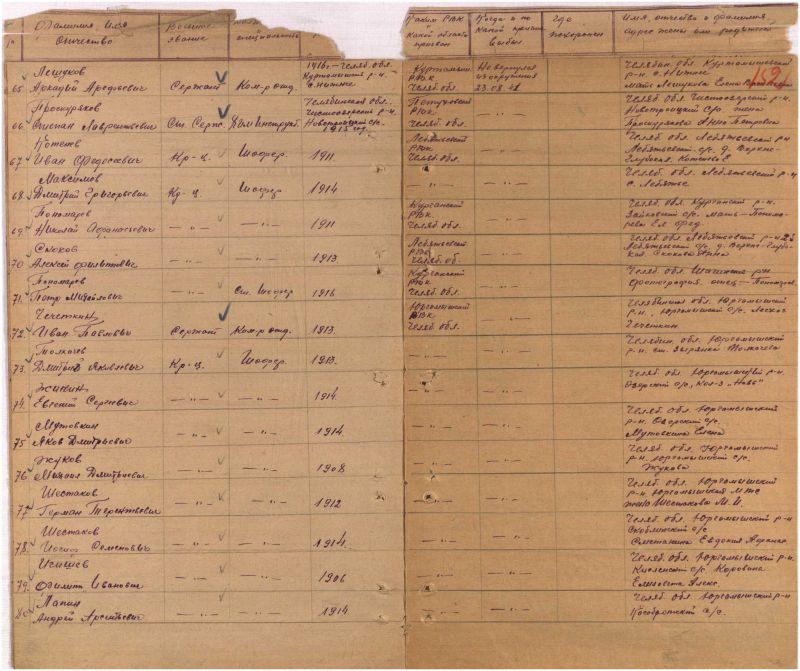 Фамилия Имя Отчество
Военное звание
Каким РВК какой области призван
Когда и по какой причине выбыл
Где похоронен
Имя, отчество и фамилия, адрес жены или родителей
162
65. Лешуков Аркадий Сержант Ком-р отд. 1916 г. Челяб. обл. Куртамышский р-н. с. Нижнее Куртамыш. РВК Челяб. обл. Не вернулся из окружения 23.08.41 Челябин. обл. Куртамышевский р-н. с. Нижнее мать Лешукова Елена
66. Проскуряков Степан Лаврентьевич Ст. Серж. Челябинская обл. Чистоозерский р-н. Новотроицкий с/с. 1915 год РВК Челяб. обл. — „ — Челяб. обл. Чистоозерск. р-н Новотроицкий с/с. жена Проскурякова Анна Петровна
67. Котенев Иван Федосеевич Кр-ц. Шофер. 1911 Лебяжьевский РВК Челяб. обл. — „ — Челяб. обл. Лебяжьевский р-н Лебяжьевск. с/с. д. Верхне-Глубокая Котенева Е
68. Максимов Дмитрий Григорьевич Кр-ц. Шофер 1914 — „ — — „ — Челяб. обл. Лебяжьевский р-н с. Лебяжье
69. Пономарев Николай Афанасьевич — „ — — „ — 1911 Курганский РВК Челяб. обл. — „ — Челяб. обл. Курганский р-н. с/с. мать Пономарева
70. Алексей Филиппович — „ — — „ — 1913. Лебяжьевский РВК Челяб. об. — „ — Челяб обл. Лебяжьевский р-н Лебяжьевский с/с, д. Верхне-Глубокая.
71. Пономарев Петр Михайлович — „ — Ст. Шофер 1916 Курганский РВК Челяб. обл. — „ — Челяб обл. р-н отец — Пономарев
72. Чечеткин Иван Павлович Сержант Ком-р отд. 1913. Юргамышский РВК Челяб. обл. — „ — Челябинская обл. Юргамышск. р-н., Юргамышский с/с. Чечеткин
73. Толкачев Дмитрий Яковлевич Кр-ц. Шофер. 1913. — „ — — „ — Челябин. обл. Юргамышский р-н. ст. Зырянка Толкачева
74. Евгений Сергеевич — „ — — „ — 1914 — „ — — „ — Челяб. обл. Юргамышский р-н.
75. Мутовкин Яков Дмитриевич — „ — — „ — 1914. — „ — — „ — Челяб. обл. Юргамышский р-н. с/с. Мутовкина Елена
76. Жуков Дмитриевич — „ — — „ — 1908 — „ — — „ — Челяб. обл. Юргамышский р-н. Юргамышский с/с. Жукова
77. Шестаков Герман Терентьевич — „ — — „ — 1912 — „ — — „ — Челяб. обл. Юргамышский р-н Юргамышская МТС жена Шестакова М. И.
78. Шестаков Иосиф Семенович — „ — — „ — 1914. — „ — — „ — Челяб. обл. Юргамышский р-н Скоблинский с/с Сметанина Евдокия
79. Филипп Иванович — „ — — „ — 1906 — „ — — „ — Челяб. обл. Юргамышский р-н. Кисленский с/с Коровина Елизавета Алекс.
80. Лапин Андрей Арсентьевич — „ — — „ — 1914 — „ — — „ — Челяб. обл. Юргамышский р-н Кособродский с/с.